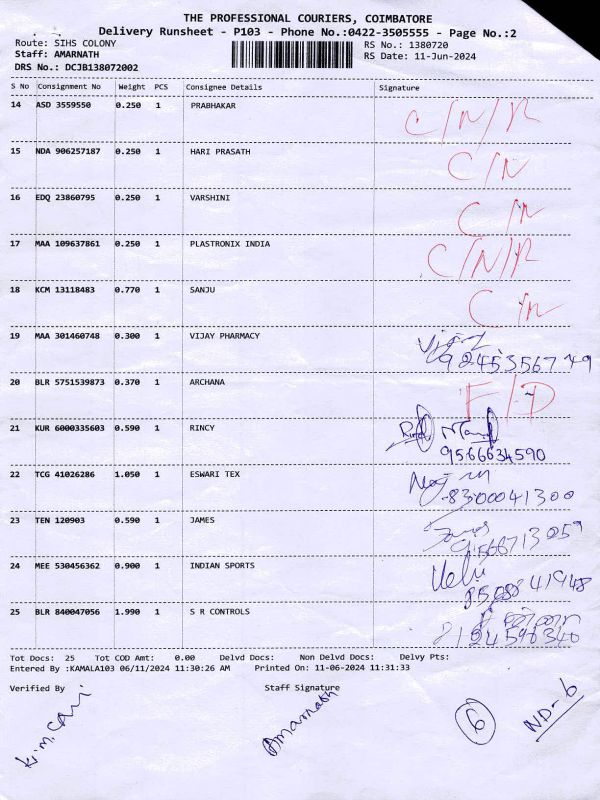 THE PROFESSIONAL COURIERS, COIMBATORE
Delivery Runsheet - P103 - Phone No.:0422-3505555 - Page No.:2
Route: SIHS COLONY RS No.: 1380720
Staff: AMARNATH RS Date: 11-Jun-2024
DRS No.: DCJB138072002
S No Consignment No Weight PCS Consignee Details Signature
14 ASD 3559550 0.250 1 PRABHAKAR C/N/R
15 NDA 906257187 0.250 1 HARI PRASATH C/N
16 EDQ 23860795 0.250 1 VARSHINI C/N
17 MAA 109637861 0.250 1 PLASTRONIX INDIA C/N/R
18 KCM 13118483 0.770 1 SANJU C/N
19 MAA 301460748 0.300 1 VIJAY PHARMACY
9245356749
20 BLR 5751539873 0.370 1 ARCHANA F/D
21 KUR 6000335603 0.590 1 RINCY
9566634590
22 TCG 41026286 1.050 1 ESWARI TEX
8300041300
23 TEN 120903 0.590 1 JAMES
9566713059
24 MEE 530456362 0.900 1 INDIAN SPORTS
25 BLR 840047056 1.990 1 S R CONTROLS
Tot Docs: 25 Tot COD Amt: 0.00 Delvd Docs: Non Delvd Docs: Delvy Pts:
Entered By :KAMALA103 06/11/2024 11:30:26 AM Printed On: 11-06-2024 11:31:33
Verified By Staff Signature
Amarnath 6 ND-6